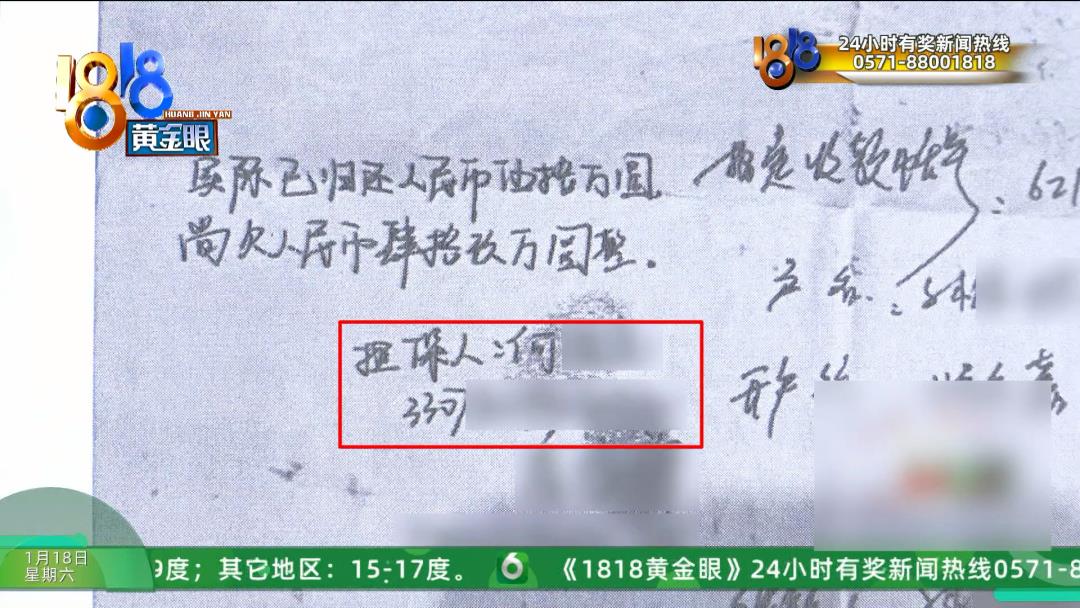 1818
HUANG JIN YAN
黄金眼
1818
24小时有奖新闻热线
0571-88001818
实际已归还人民币 拾万圆
尚欠人民币肆拾玖万圆整。
指定收款帐号：621
户名：
开户
担保人：何
330
1月18日
星期六
9度；其它地区：15-17度。
6
《1818黄金眼》24小时有奖新闻热线0571-8